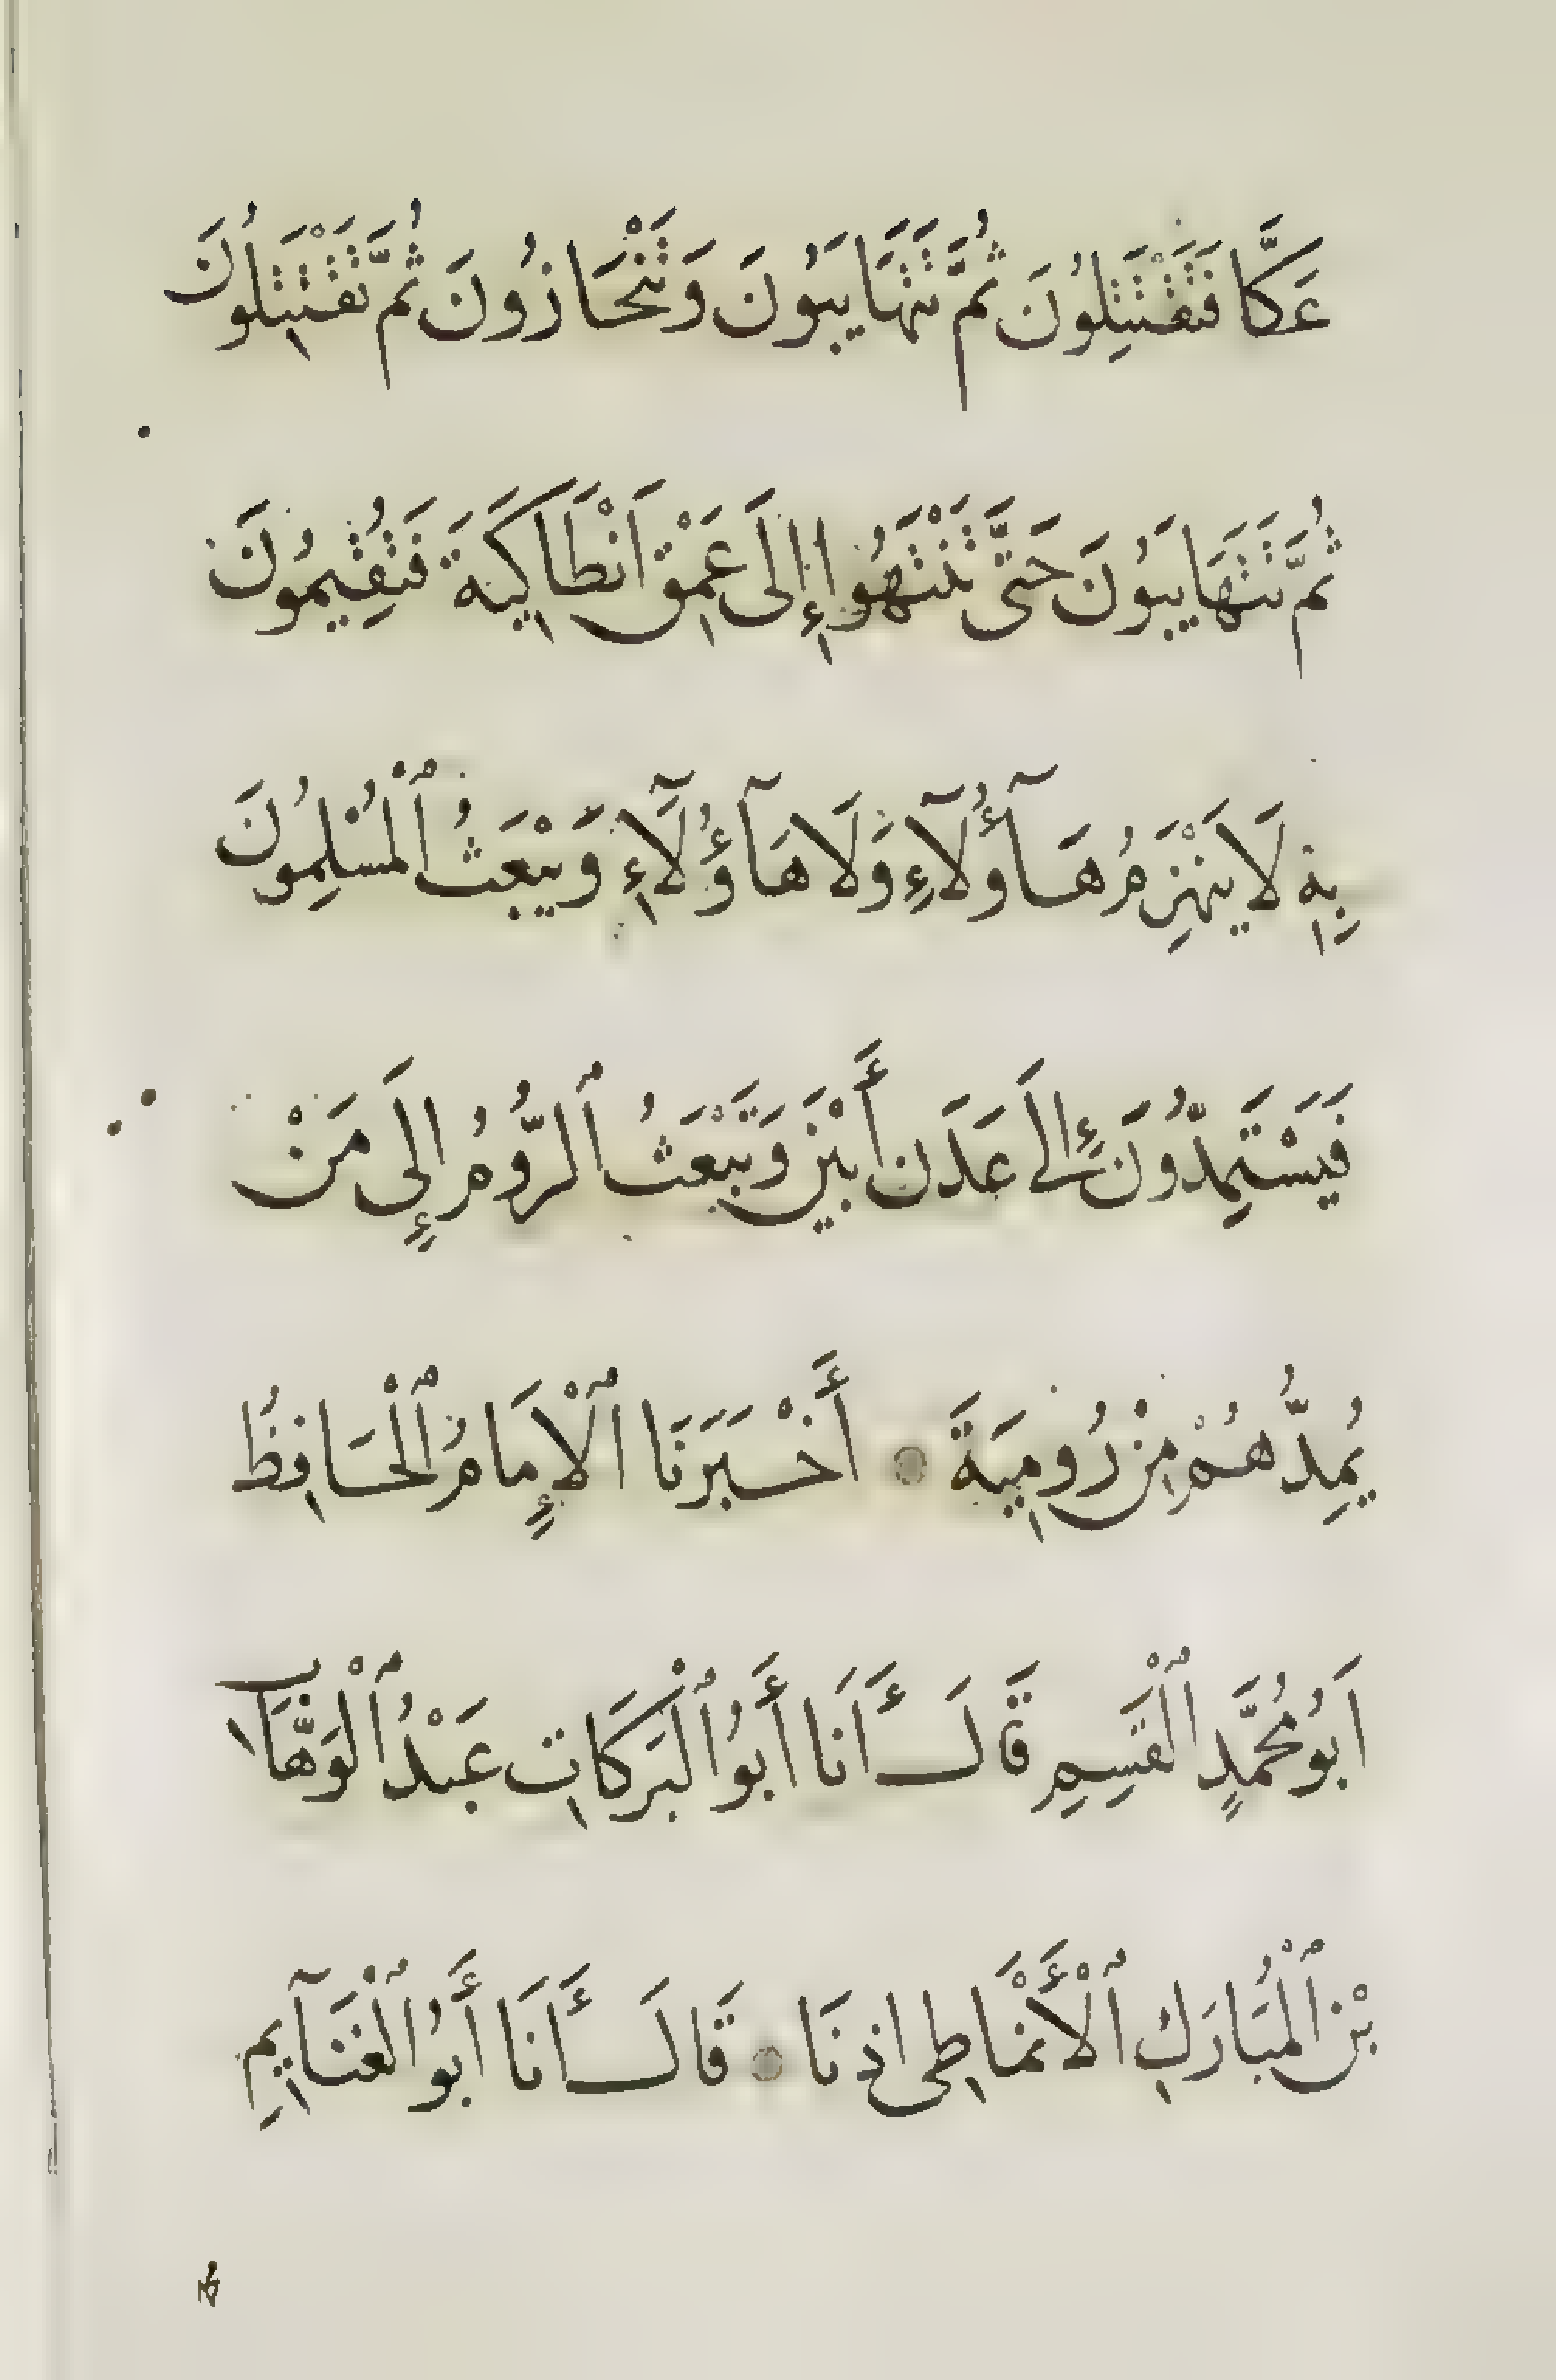 عَكَّا فَتَقْتَتِلُونَ ثُمَّ تَتَهَايَبُونَ وَتَنْحَازُونَ ثُمَّ تَقْتَتِلُونَ
ثُمَّ تَتَهَايَبُونَ حَتَّى تَنْتَهُوا إِلَى عَمْقِ اَنْطَاكِيَةَ فَتُقِيمُونَ
بِهِ لَا يَنْهَزِمُ هَآؤُلَآءِ وَلَا هَآؤُلَآءِ وَيَبْعَثُ ٱلْمُسْلِمُونَ
فَيَسْتَمِدُّونَ إِلَى عَدَنِ أَبْيَنَ وَتَبْعَثُ ٱلرُّومُ إِلَى مَنْ
يُمِدُّهُمْ مِنْ رُومِيَةَ أَخْبَرَنَا ٱلْإِمَامُ ٱلْحَافِظُ
اَبُو مُحَمَّدٍ ٱلْقَسِمِ قَالَ أَنَا أَبُو ٱلْبَرَكَاتِ عَبْدُ ٱلْوَهَّابِ
بْنِ ٱلْمُبَارَكِ ٱلْأَنْمَاطِي اذنَا قَالَ أَنَا أَبُو ٱلْغَنَآيِمِ